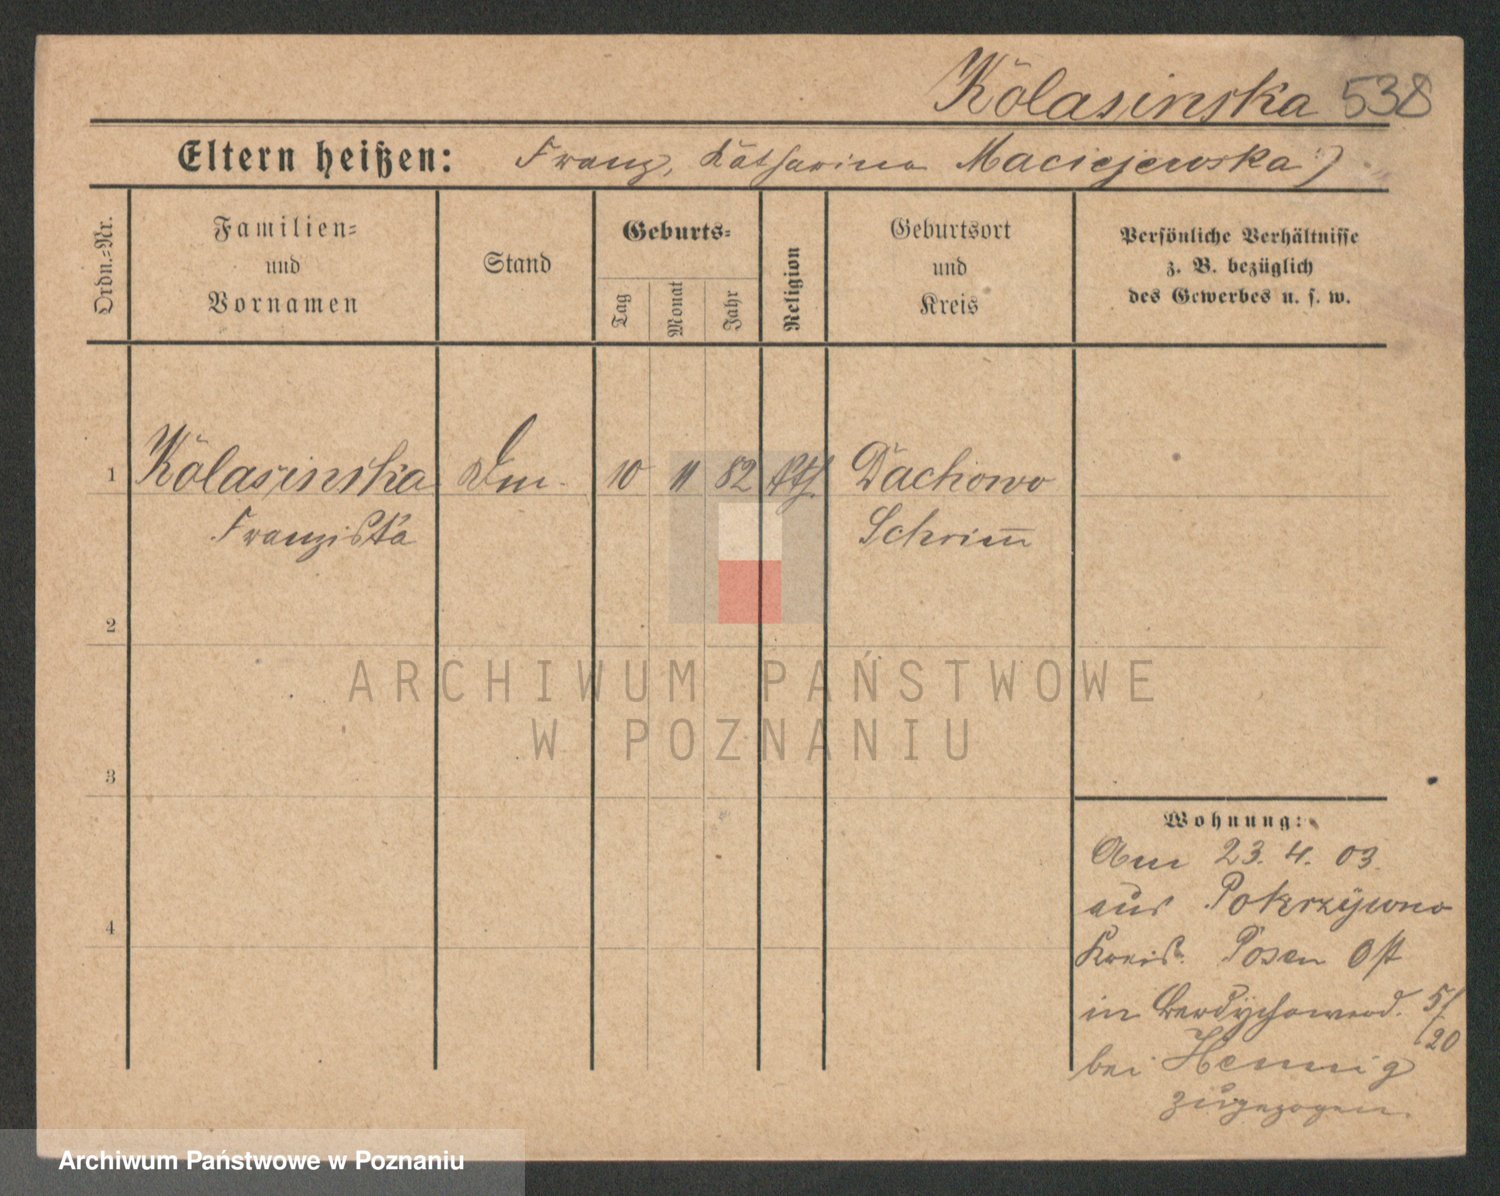 Kolasinska 538
Eltern heißen: Franz, Katharina Maciejewska)
Ordn.-Nr.
Familien-
und
Vornamen
Stand
Geburts-
Tag
Monat
Jahr
Religion
Geburtsort
und
Kreis
Persönliche Verhältnisse
z. B. bezüglich
des Gewerbes u. s. w.
1 Kolasinska 10 11 82 kth. Dachowo
Franziska Schrim̅
2
ARCHIWUM PAŃSTWOWE
W POZNANIU
3
Wohnung:
Am 23. 4. 03.
aus Pokrzywno
4
Kreis Posen Ost
in 5/
20
bei Hennig
zugezogen.
Archiwum Państwowe w Poznaniu